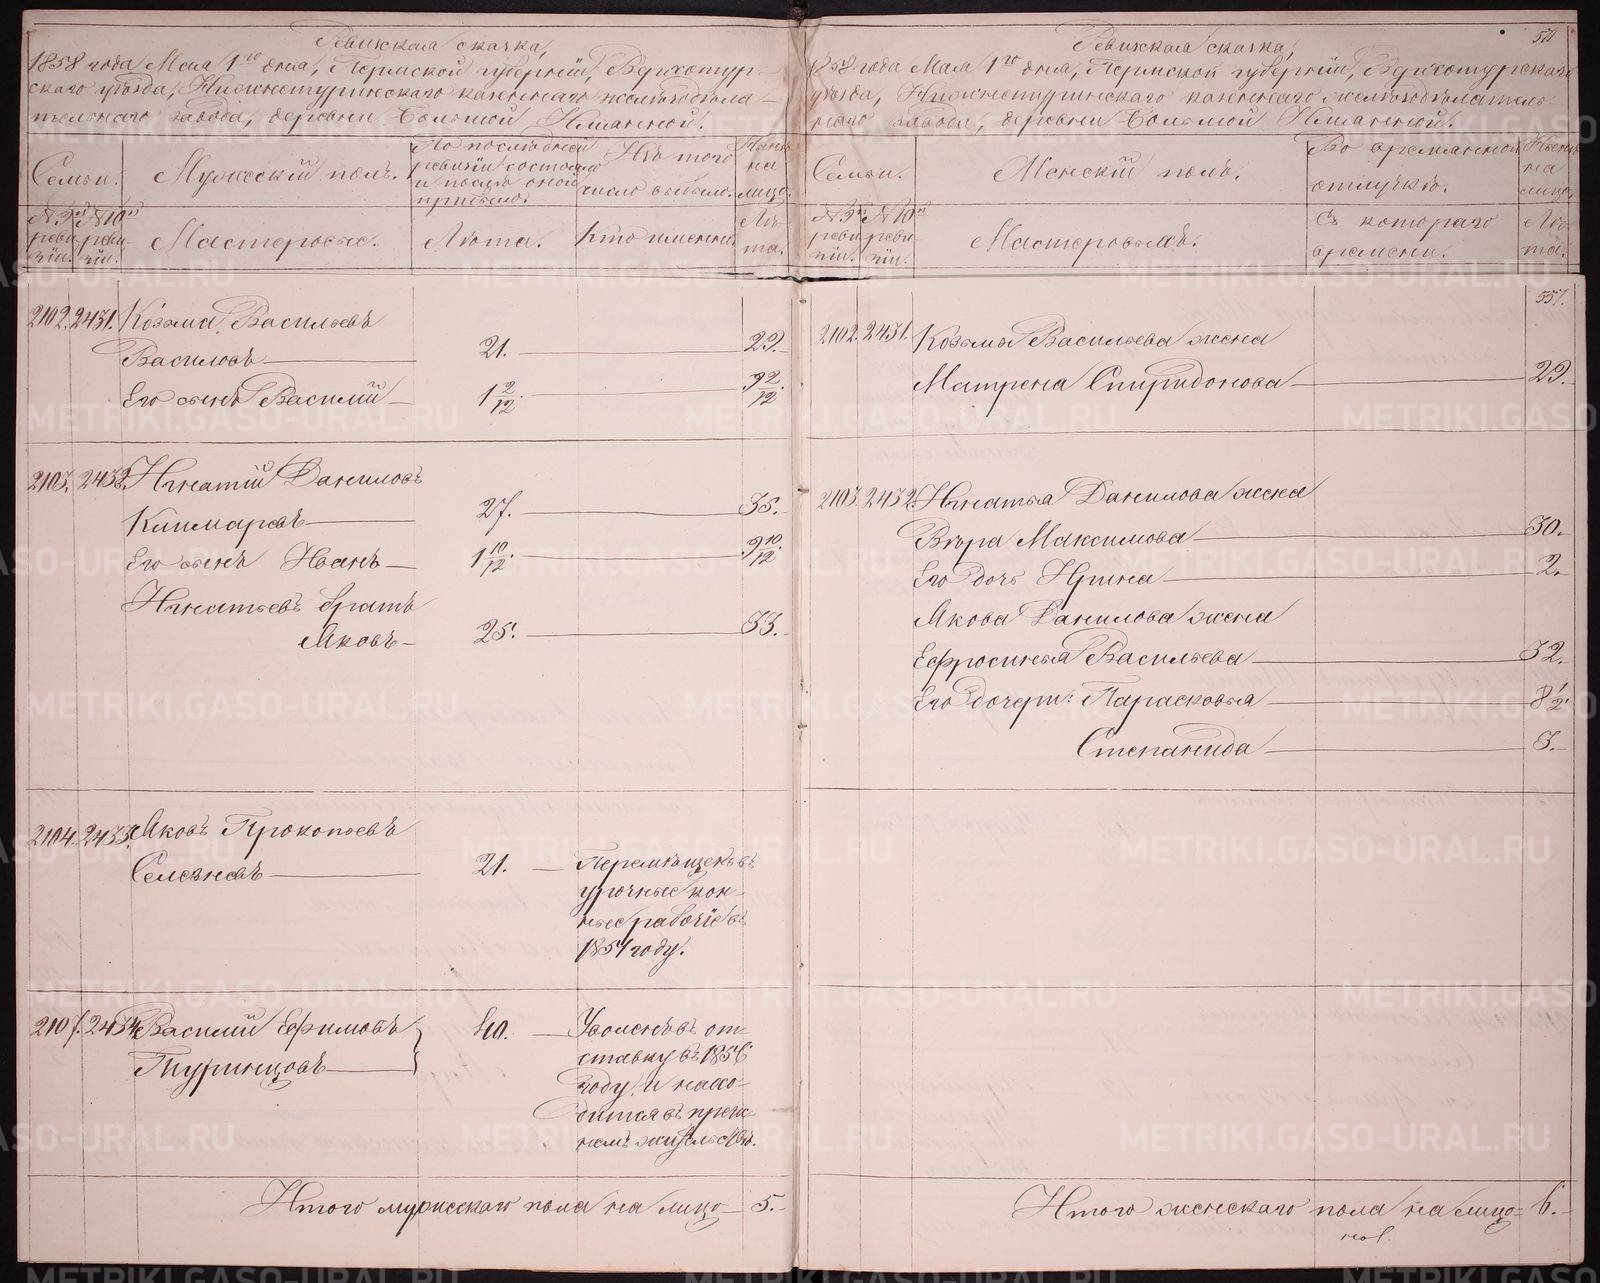 Ревизская сказка,
1858 года Мая 1го дня, Пермской губернiи, Верхотур-
скаго уѣзда, Нижнетуринскаго казеннаго желѣзодѣла-
тельнаго завода, деревни Большой Именной.
Семьи.
Мужескiй полъ.
По последней
ревизiи состояло
и послѣ оной
прибыло.
Изъ того
число выбыло.
Нынѣ
на
лицо.
№ 9й
реви-
зiи.
№ 10й
реви-
зiи.
Мастеровые.
Лѣта.
Кто именно.
Лѣ-
та.
2102. 2431. Козьма Васильевъ
Василовъ 21. 29.
Его сынъ Василiй 1 2/12. 9 2/12.
2103. 2432. Игнатiй Даниловъ
27. 35.
Его сынъ Иванъ 1 10/12. 9 10/12.
Игнатьевъ братъ
Яковъ 25. 33.
2104. 2433. Яковъ Прокопьевъ
Селезневъ 21. Перемѣщенъ въ
урочные кон-
ные рабочiе въ
1851 году.
2107. 2434. Василiй Ефимовъ
Туринцовъ 40. Уволенъ въ от-
ставку въ 1856
году и нахо-
дится въ преж-
немъ жительствѣ.
Итого мужескаго пола на лицо 5.
511
Ревизская сказка,
1858 года Мая 1го дня, Пермской губернiи, Верхотурскаго
уѣзда, Нижнетуринскаго казеннаго желѣзодѣлатель-
наго завода, деревни Большой Именной.
Семьи.
Женскiй полъ.
Во временной
отлучкѣ.
Нынѣ
на
лицо.
№ 9й
реви-
зiи.
№ 10й
реви-
зiи.
Мастеровыхъ.
Съ котораго
времени.
Лѣ-
та.
557.
2102. 2431. Козьмы Васильева жена
Матрена Спиридонова 29.
2103. 2432. Игнатья Данилова жена
Вѣра Максимова 30.
Его дочь Ирина 2.
Якова Данилова жена
Ефросинья Васильева 32.
Его дочери: Парасковья 8 1/2.
Степанида 3.
Итого женскаго пола на лицо 6.
METRIKI.GASO-URAL.RU